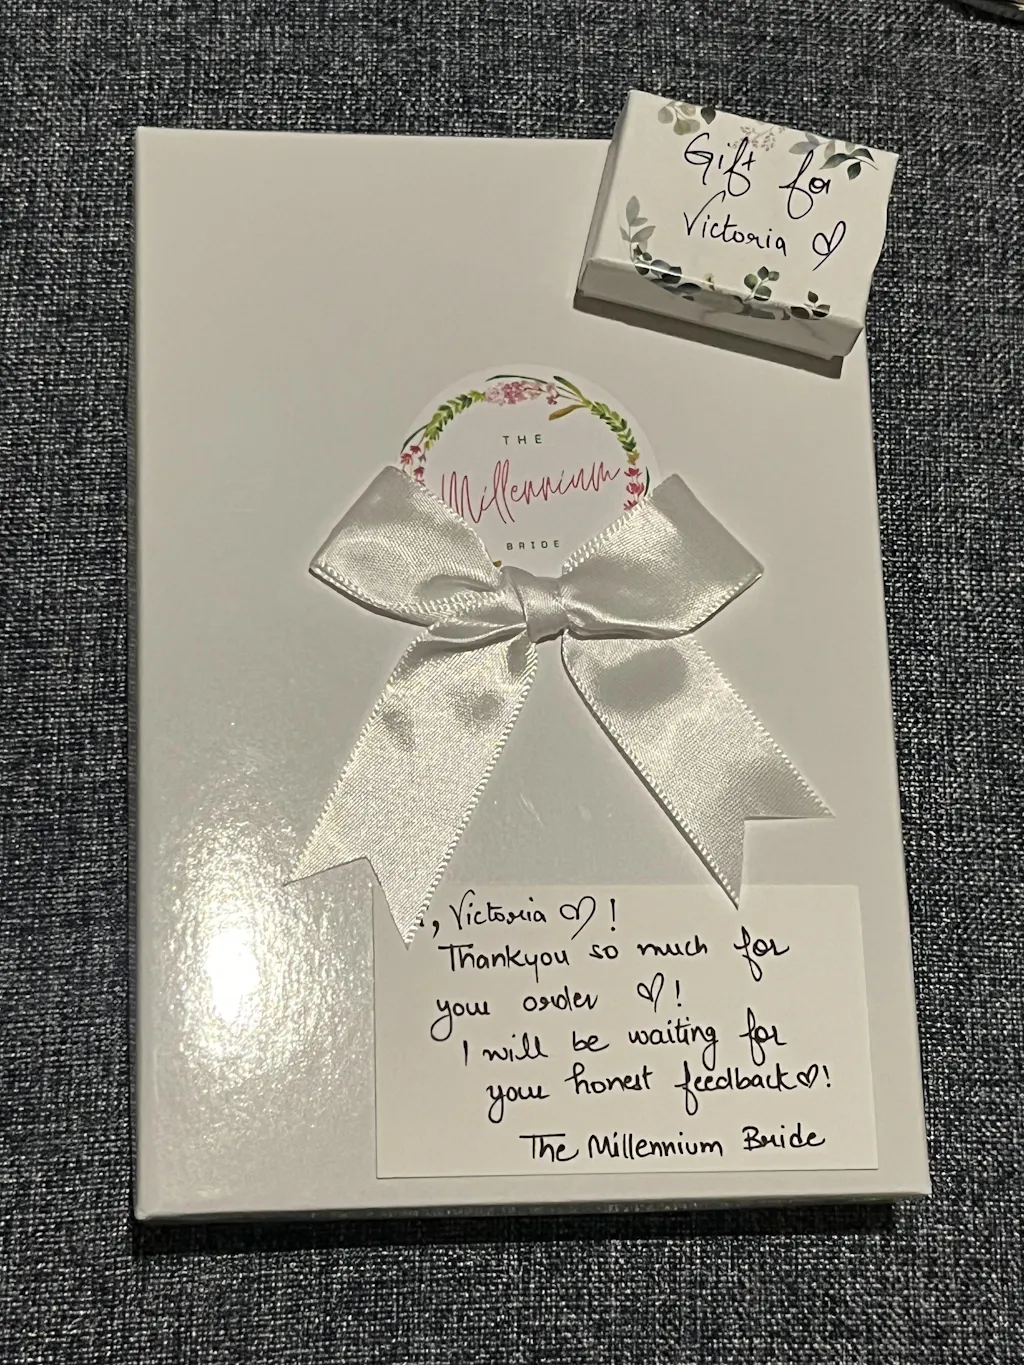 Gift for
Victoria ♡
THE
Millennium
BRIDE
, Victoria ♡!
Thankyou so much for
your order ♡!
I will be waiting for
your honest feedback♡!
The Millennium Bride